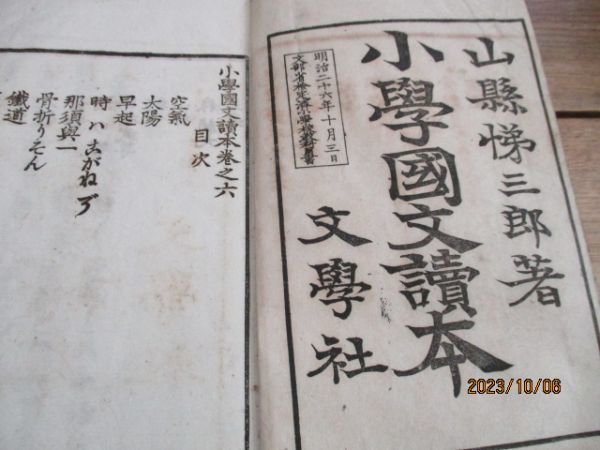 山縣悌三郎著
小學國文讀本
明治二十六年十月三日
文部省檢定濟小學校教科書
文學社
小學國文讀本卷之六
目次
空氣
太陽
早起
時ハこがねゾ
那須與一
骨折りそん
鐵道
2023/10/06